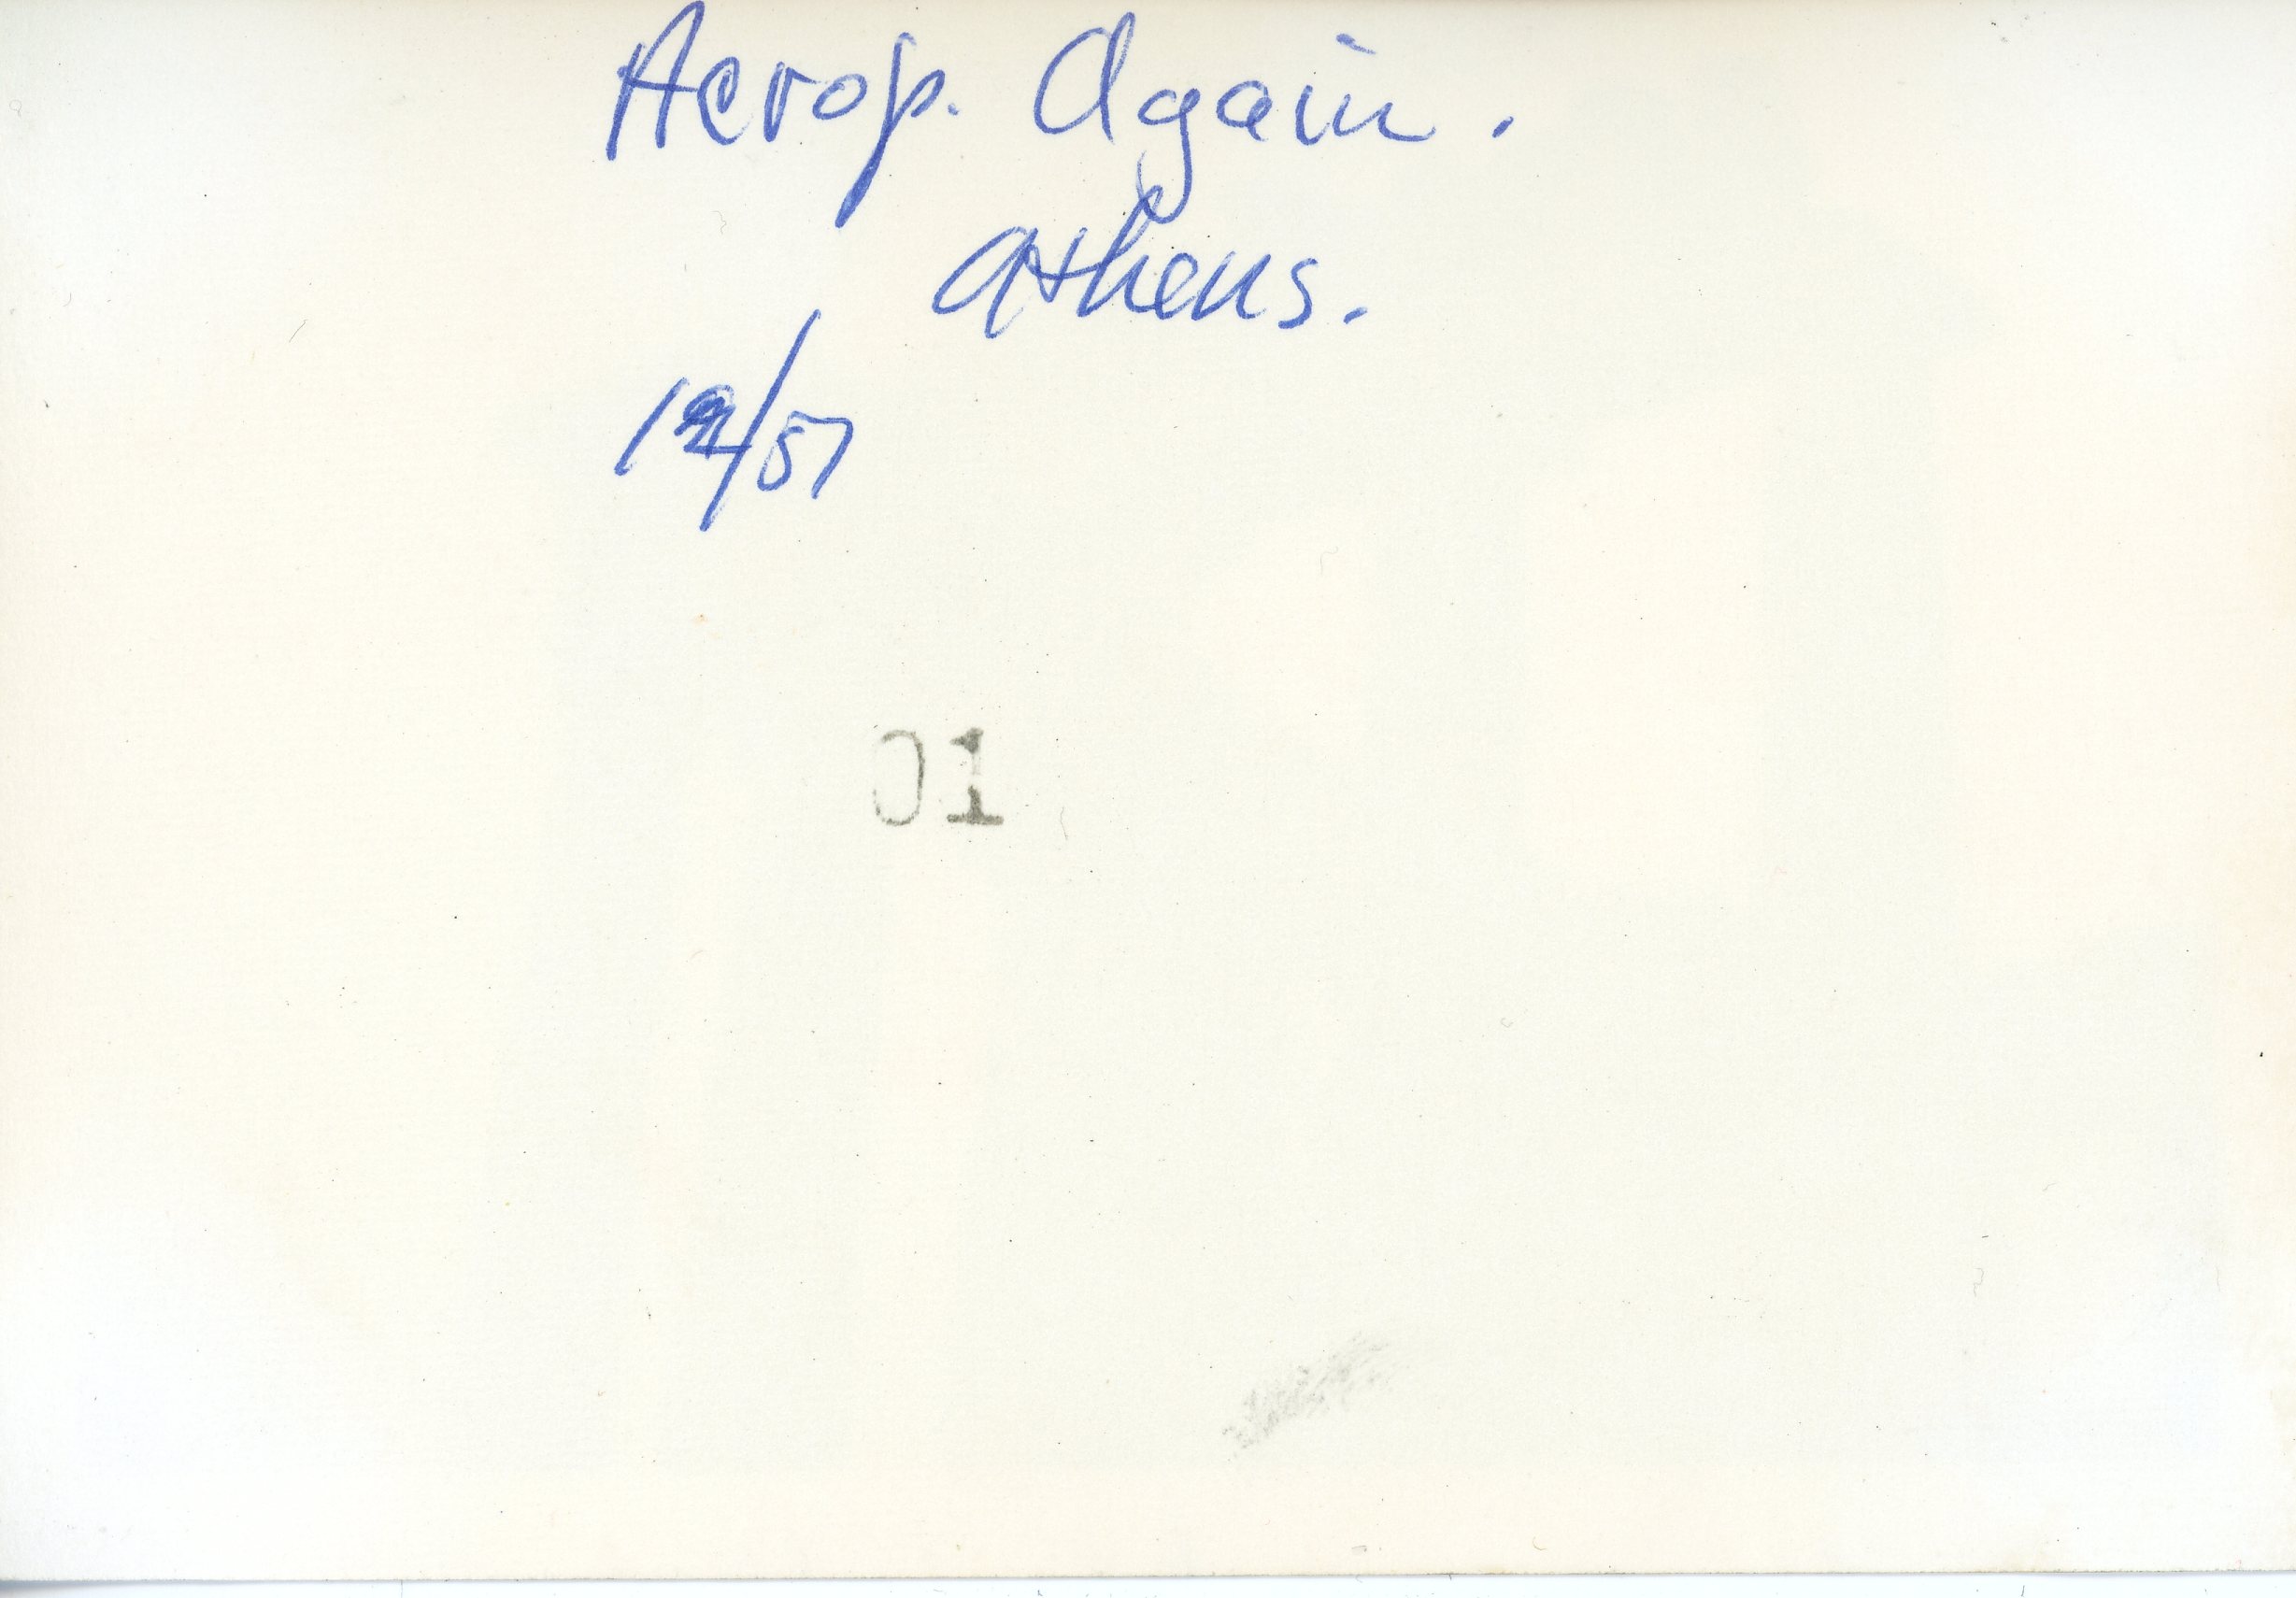 Acrop. Again.
Athens.
12/57
01